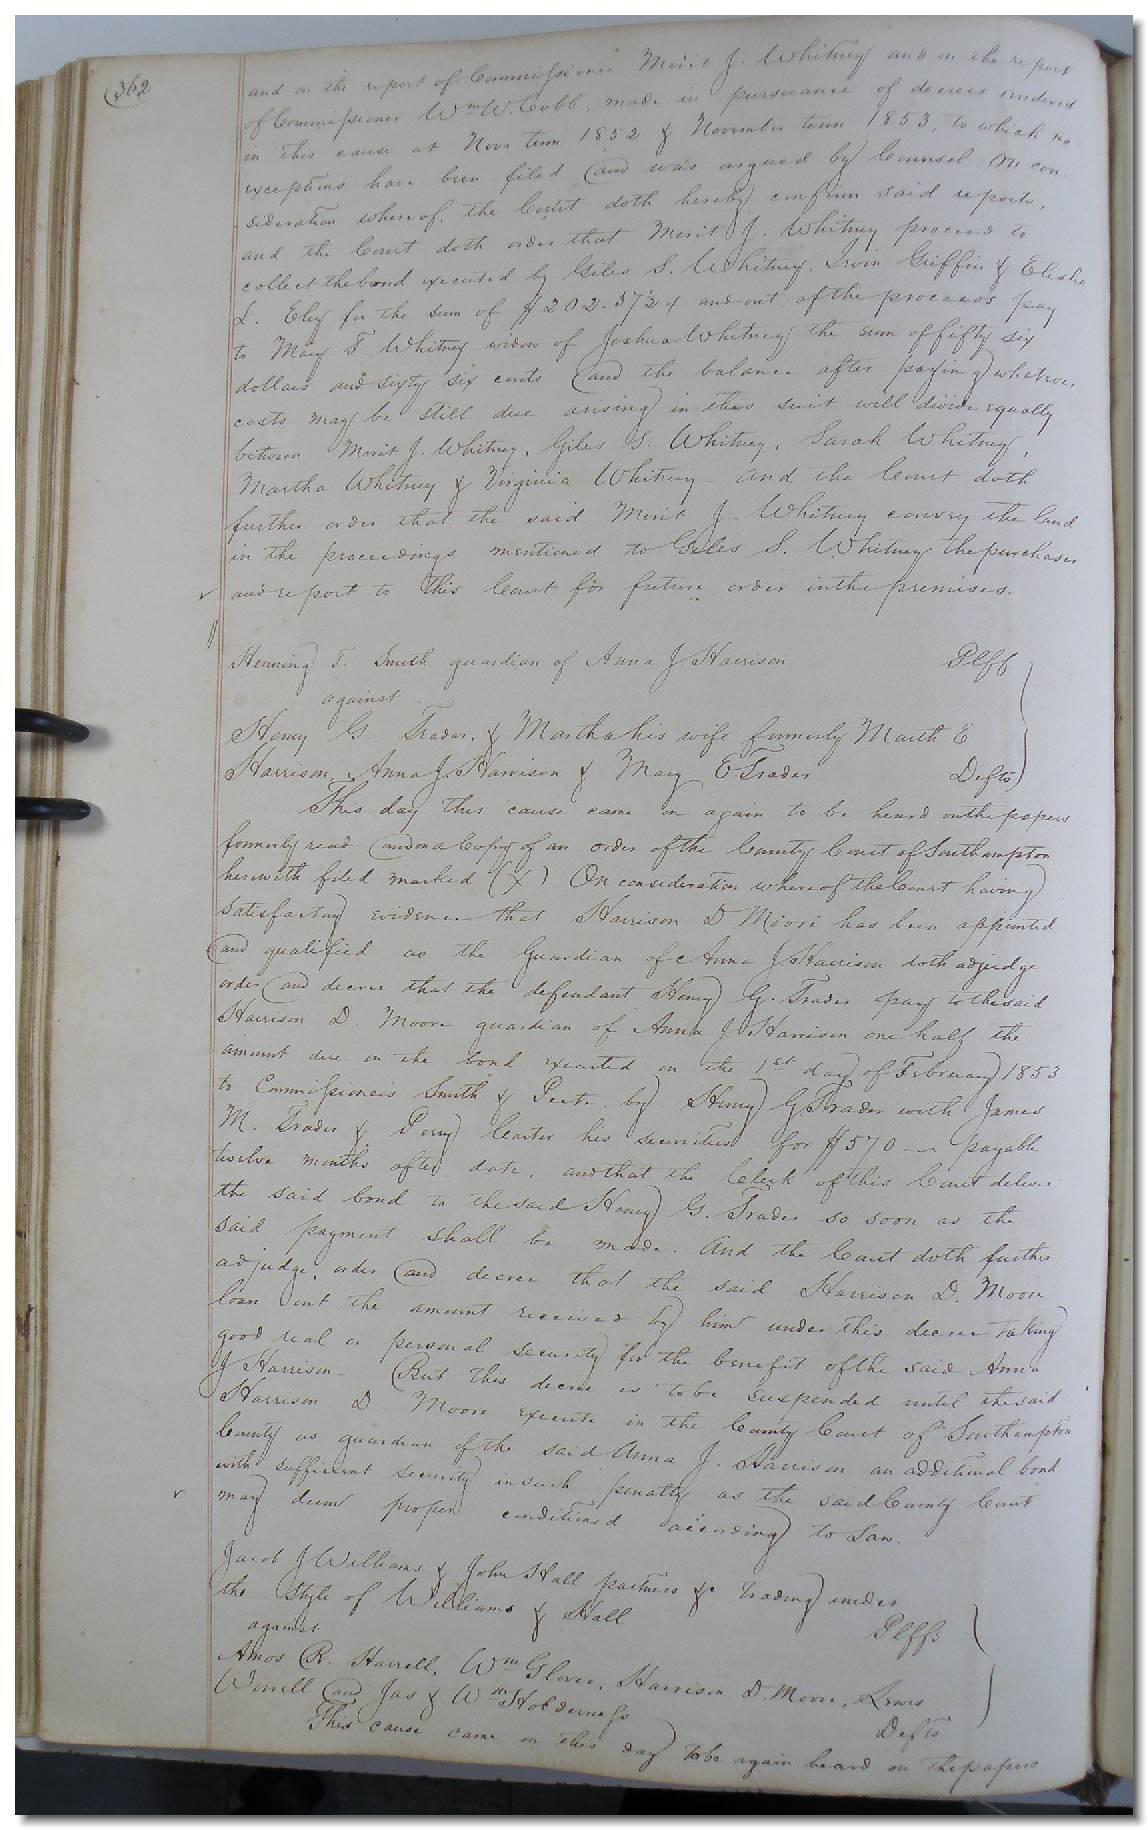 362
and on the report of Commissioner Merit J. Whitney and on the report
of Commissioner Wm W. Cobb, made in pursuance of decrees rendered
in this cause at Novr term 1852 & November term 1853, to which no
exceptions have been filed and was argued by Counsel On con-
sideration whereof, the Court doth hereby confirm said reports,
and the Court doth order that Merit J. Whitney proceed to
collect the bond executed by Giles S. Whitney, Irvin Griffin & Elisha
L. Eley for the sum of $202.37 1/2 & and out of the proceeds pay
to Mary T. Whitney widow of Joshua Whitney the sum of fifty six
dollars and sixty six cents and the balance after paying whatever
costs may be still due arising in this suit will divide equally
between Merit J. Whitney, Giles S. Whitney, Sarah Whitney,
Martha Whitney & Virginia Whitney - And the Court doth
further order that the said Merit J. Whitney convey the land
in the proceedings mentioned to Giles S. Whitney the purchaser
and report to this Court for future order in the premises.
Henning T. Smith guardian of Anna J Harrison Plff
against
Henry G. Trader, & Martha his wife formerly Marth E
Harrison, Anna J Harrison & Mary E Trader Defts
This day this cause came on again to be heard on the papers
formerly read and on a Copy of an order of the County Court of Southampton
herewith filed marked (X) On consideration whereof the Court having
satisfactory evidence that Harrison D Moore has been appointed
and qualified as the Guardian of Anna J Harrison doth adjudge
order and decree that the defendant Henry G. Trader pay to the said
Harrison D. Moore guardian of Anna J Harrison one half the
amount due on the bond executed on the 1st day of February 1853
to Commissioners Smith & Pretlow by Henry G Trader with James
M. Trader & Perry Carter his securities for $570 — payable
twelve months after date, and that the Clerk of this Court deliver
the said bond to the said Henry G. Trader so soon as the
said payment shall be made. And the Court doth further
adjudge, order and decree that the said Harrison D. Moore
loan out the amount received by him under this decree taking
good real or personal security for the benefit of the said Anna
J Harrison - But this decree is to be suspended until the said
Harrison D Moore execute in the County Court of Southampton
County as guardian of the said Anna J. Harrison an additional bond
with sufficient security in such penalty as the said County Court
may deem proper conditioned according to Law.
Jacob J Williams & John Hall partners &c trading under
the Style of Williams & Hall Plffs
against
Amos R. Harrell, Wm Glover, Harrison D. Moore, Lewis
Worrell and Jas & Wm Holderness Defts
This cause came on this day to be again heard on the papers